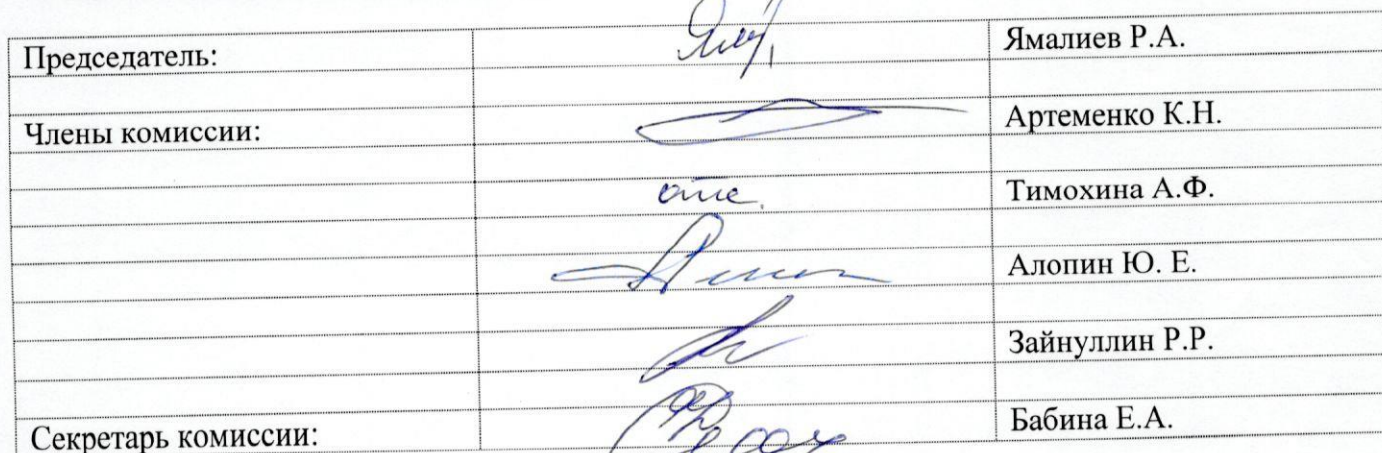 Председатель: Ямалиев Р.А.
Члены комиссии: Артеменко К.Н.
отс. Тимохина А.Ф.
Алопин Ю. Е.
Зайнуллин Р.Р.
Секретарь комиссии: Бабина Е.А.